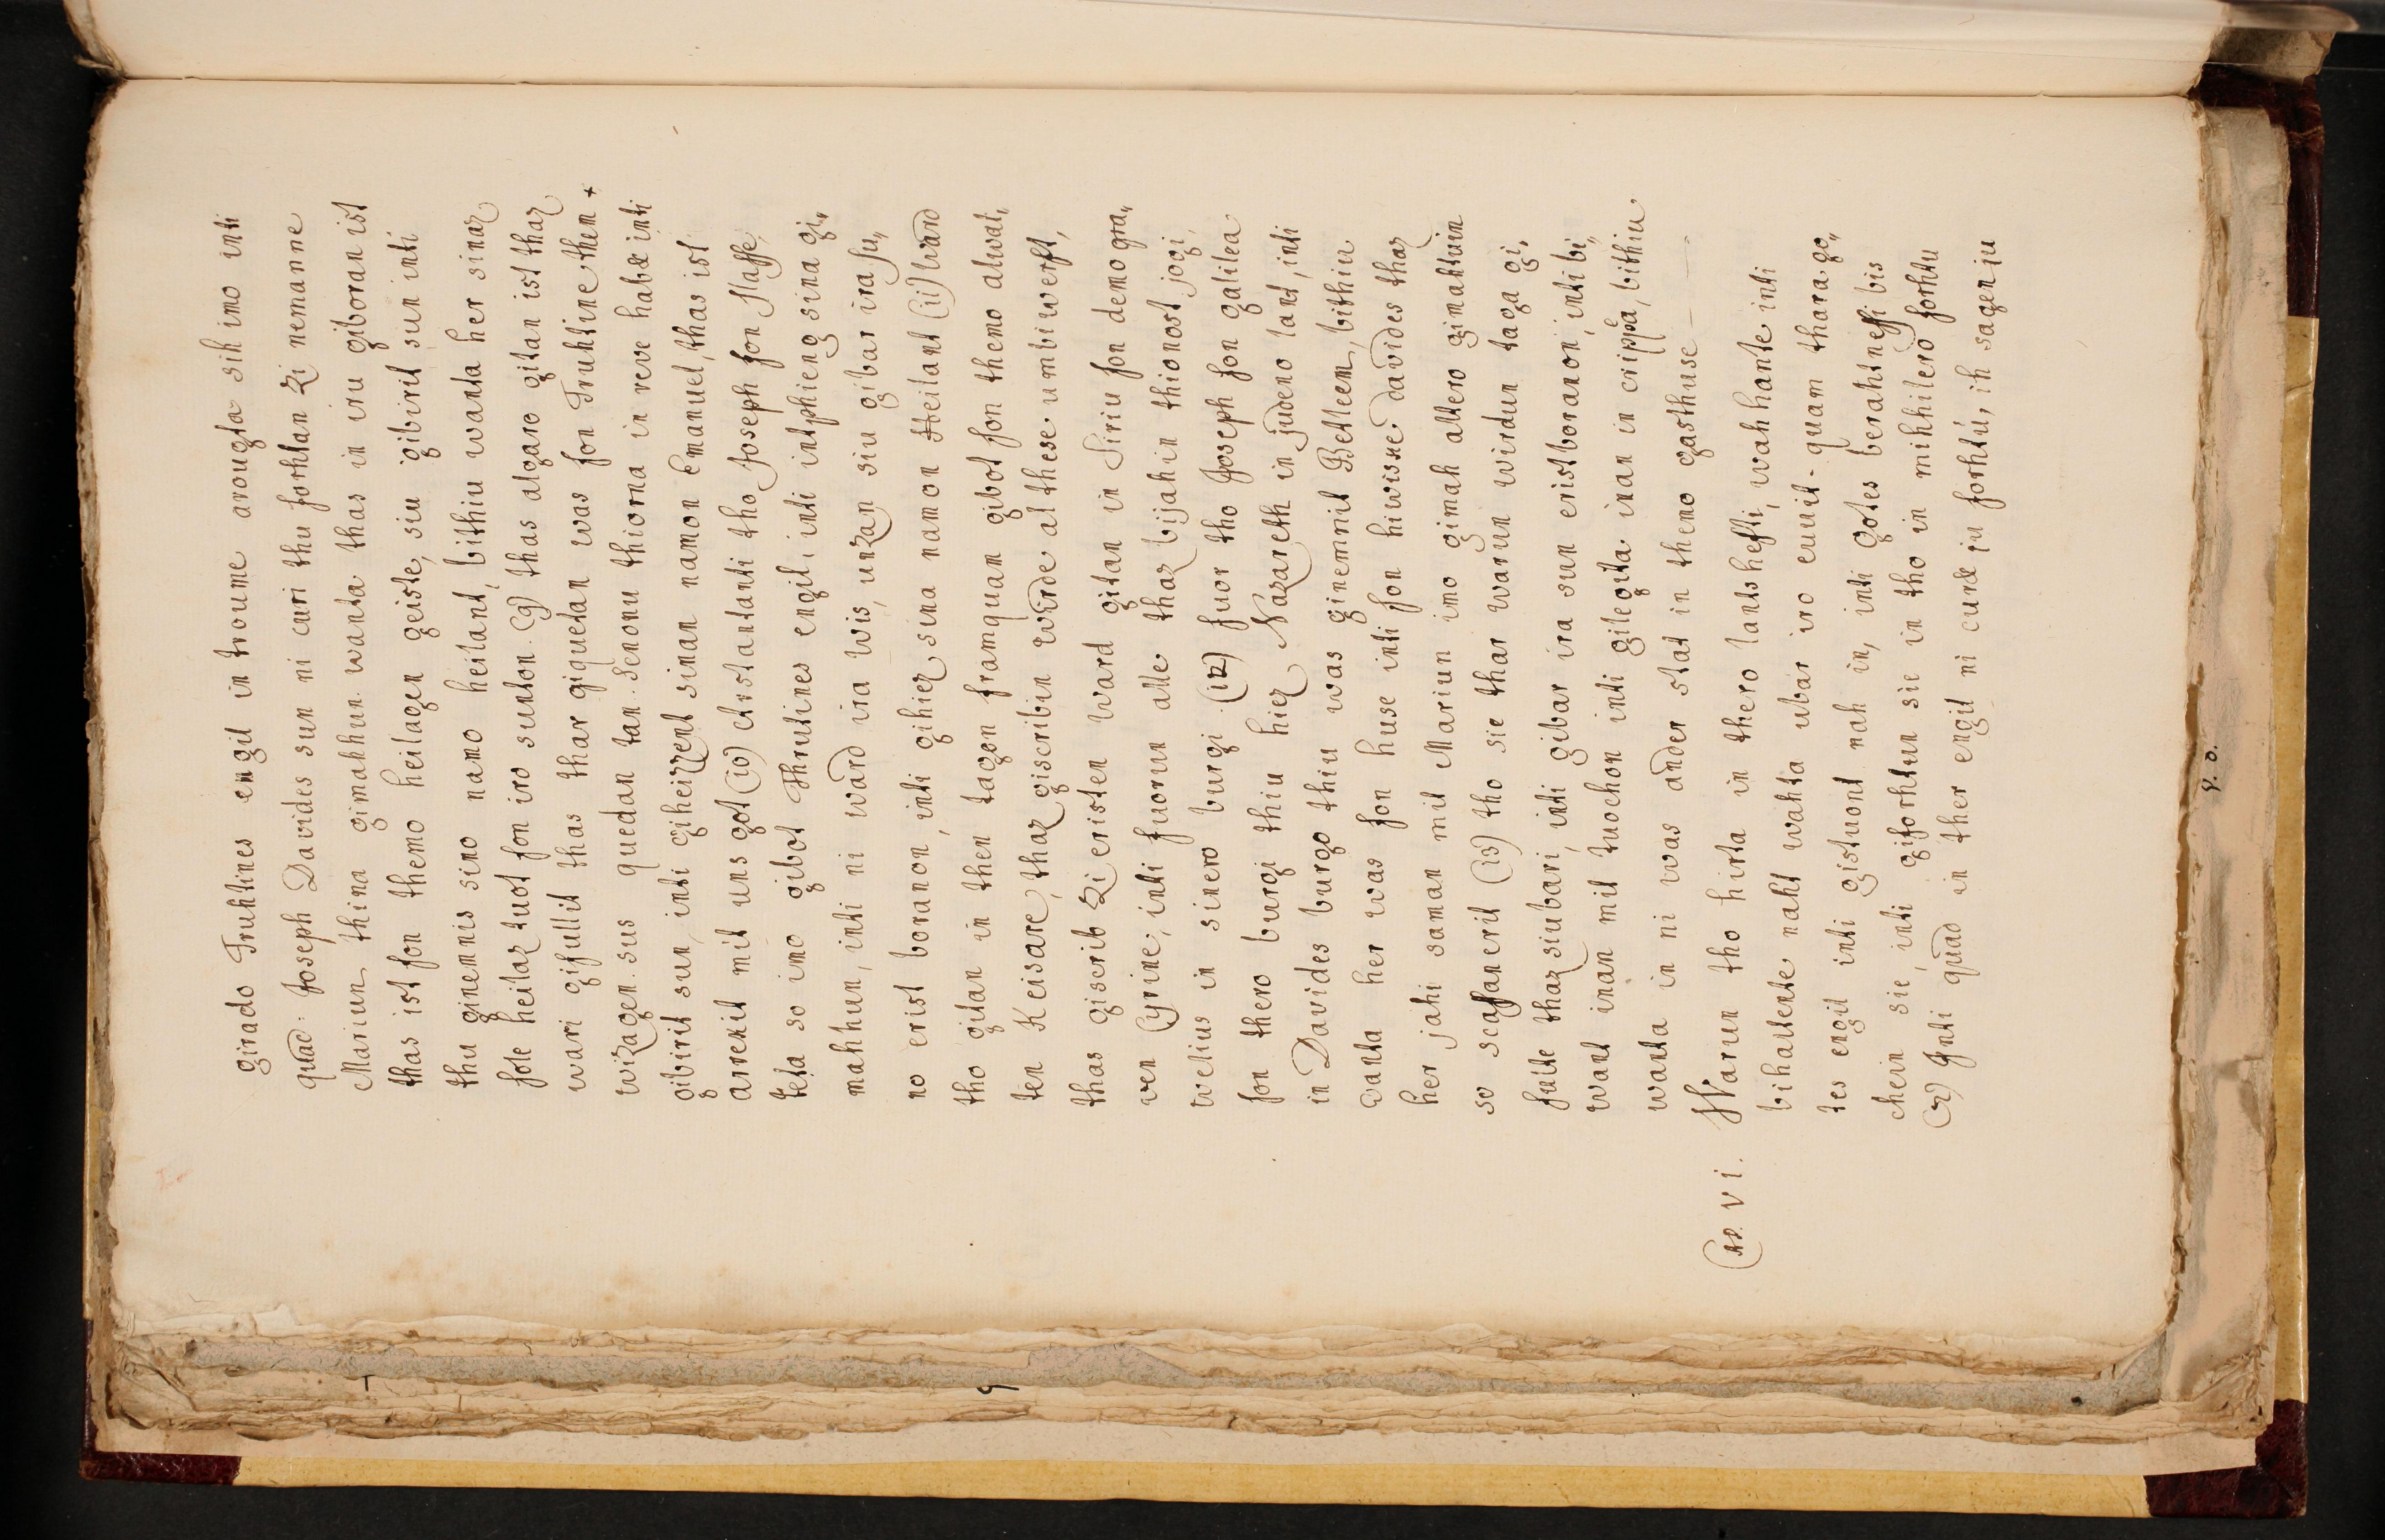 girado Truhtines engil in troume arougta sih imo inti
quad. Joseph Davides sun ni curi thu forhtan zi nemanne
Mariun thina gimahhun. wanta thas in iru giboran ist
thas ist fon themo heilagen geiste, siu gibirit sun inti
thu ginemnis sino namo heilant, bithiu wanta her sinaz
folc heilaz tuot fon iro sunton. (9) thas algaro gitan ist thaz
wari gifullit thas thar giquetan was fon Truhtine then +
wizagen. sus quedan tan. Senonu thiorna in reve hab& inti
gibirit sun, inti giheizzent sinan namon Emanuel, thas ist
arrekit mit uns got (10) Arstantanti tho Joseph fon slaffe,
teta so imo gibot Thrutines engil, inti intphieng sina gi„
mahhun, inti ni ward ira wis, unzan siu gibar ira su„
no erist boranon, inti gihiez sina namon Heilant (11) ward
tho gitan in then tagon framquam gibot fon themo alwal„
ten Keisare, thaz giscribin wurde al these umbiwerft,
thas giscrib zi eristen ward gitan in Siriu fon demo gra„
ven Cyrine, inti fuorun alle thaz bijahin thionost jogi„
welius in sinero burgi (12) fuor tho Joseph fon galilea
fon thero burgi thiu hiez Nazareth in judeno lant, inti
in Davides burgo thiu was ginemnit Betleem, bithiu
wanta her was fon huse inti fon hiwiske davides thaz
her jahi saman mit Mariun imo gimah altero gimahtuin
so scafaneru (13) tho sie thar warun wirdun taga gi„
fulte thaz siu bari, inti gibar ira sun eristboranon, inti bi„
want inan mit tuochon inti gilegita inan in crippea, bithiu
wanta in ni was ander stat in themo gasthuse —
VI. Warun tho hirta in thero lantskeffi, wahhante inti
bihaltente naht wahta ubar iro euuit. quam thara go„
tes engil inti gistuont nah in, inti gotes berahtnessi bis
chein sie, inti giforhtun sie in tho in mihhilero forhtu
(2) Inti quad in ther engil ni cur& iu forhtu, ih sagen iu